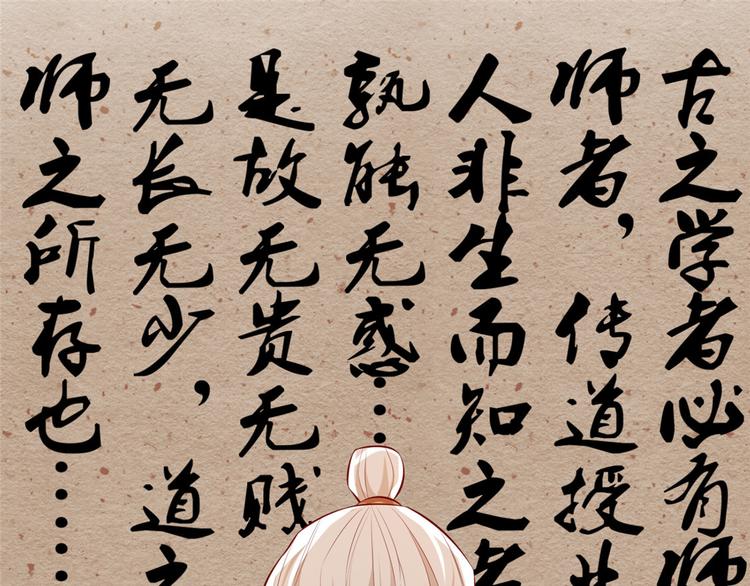 古之学者必有师
师者，传道授业
人非生而知之者
孰能无惑……
是故无贵无贱
无长无少，道之
师之所存也……